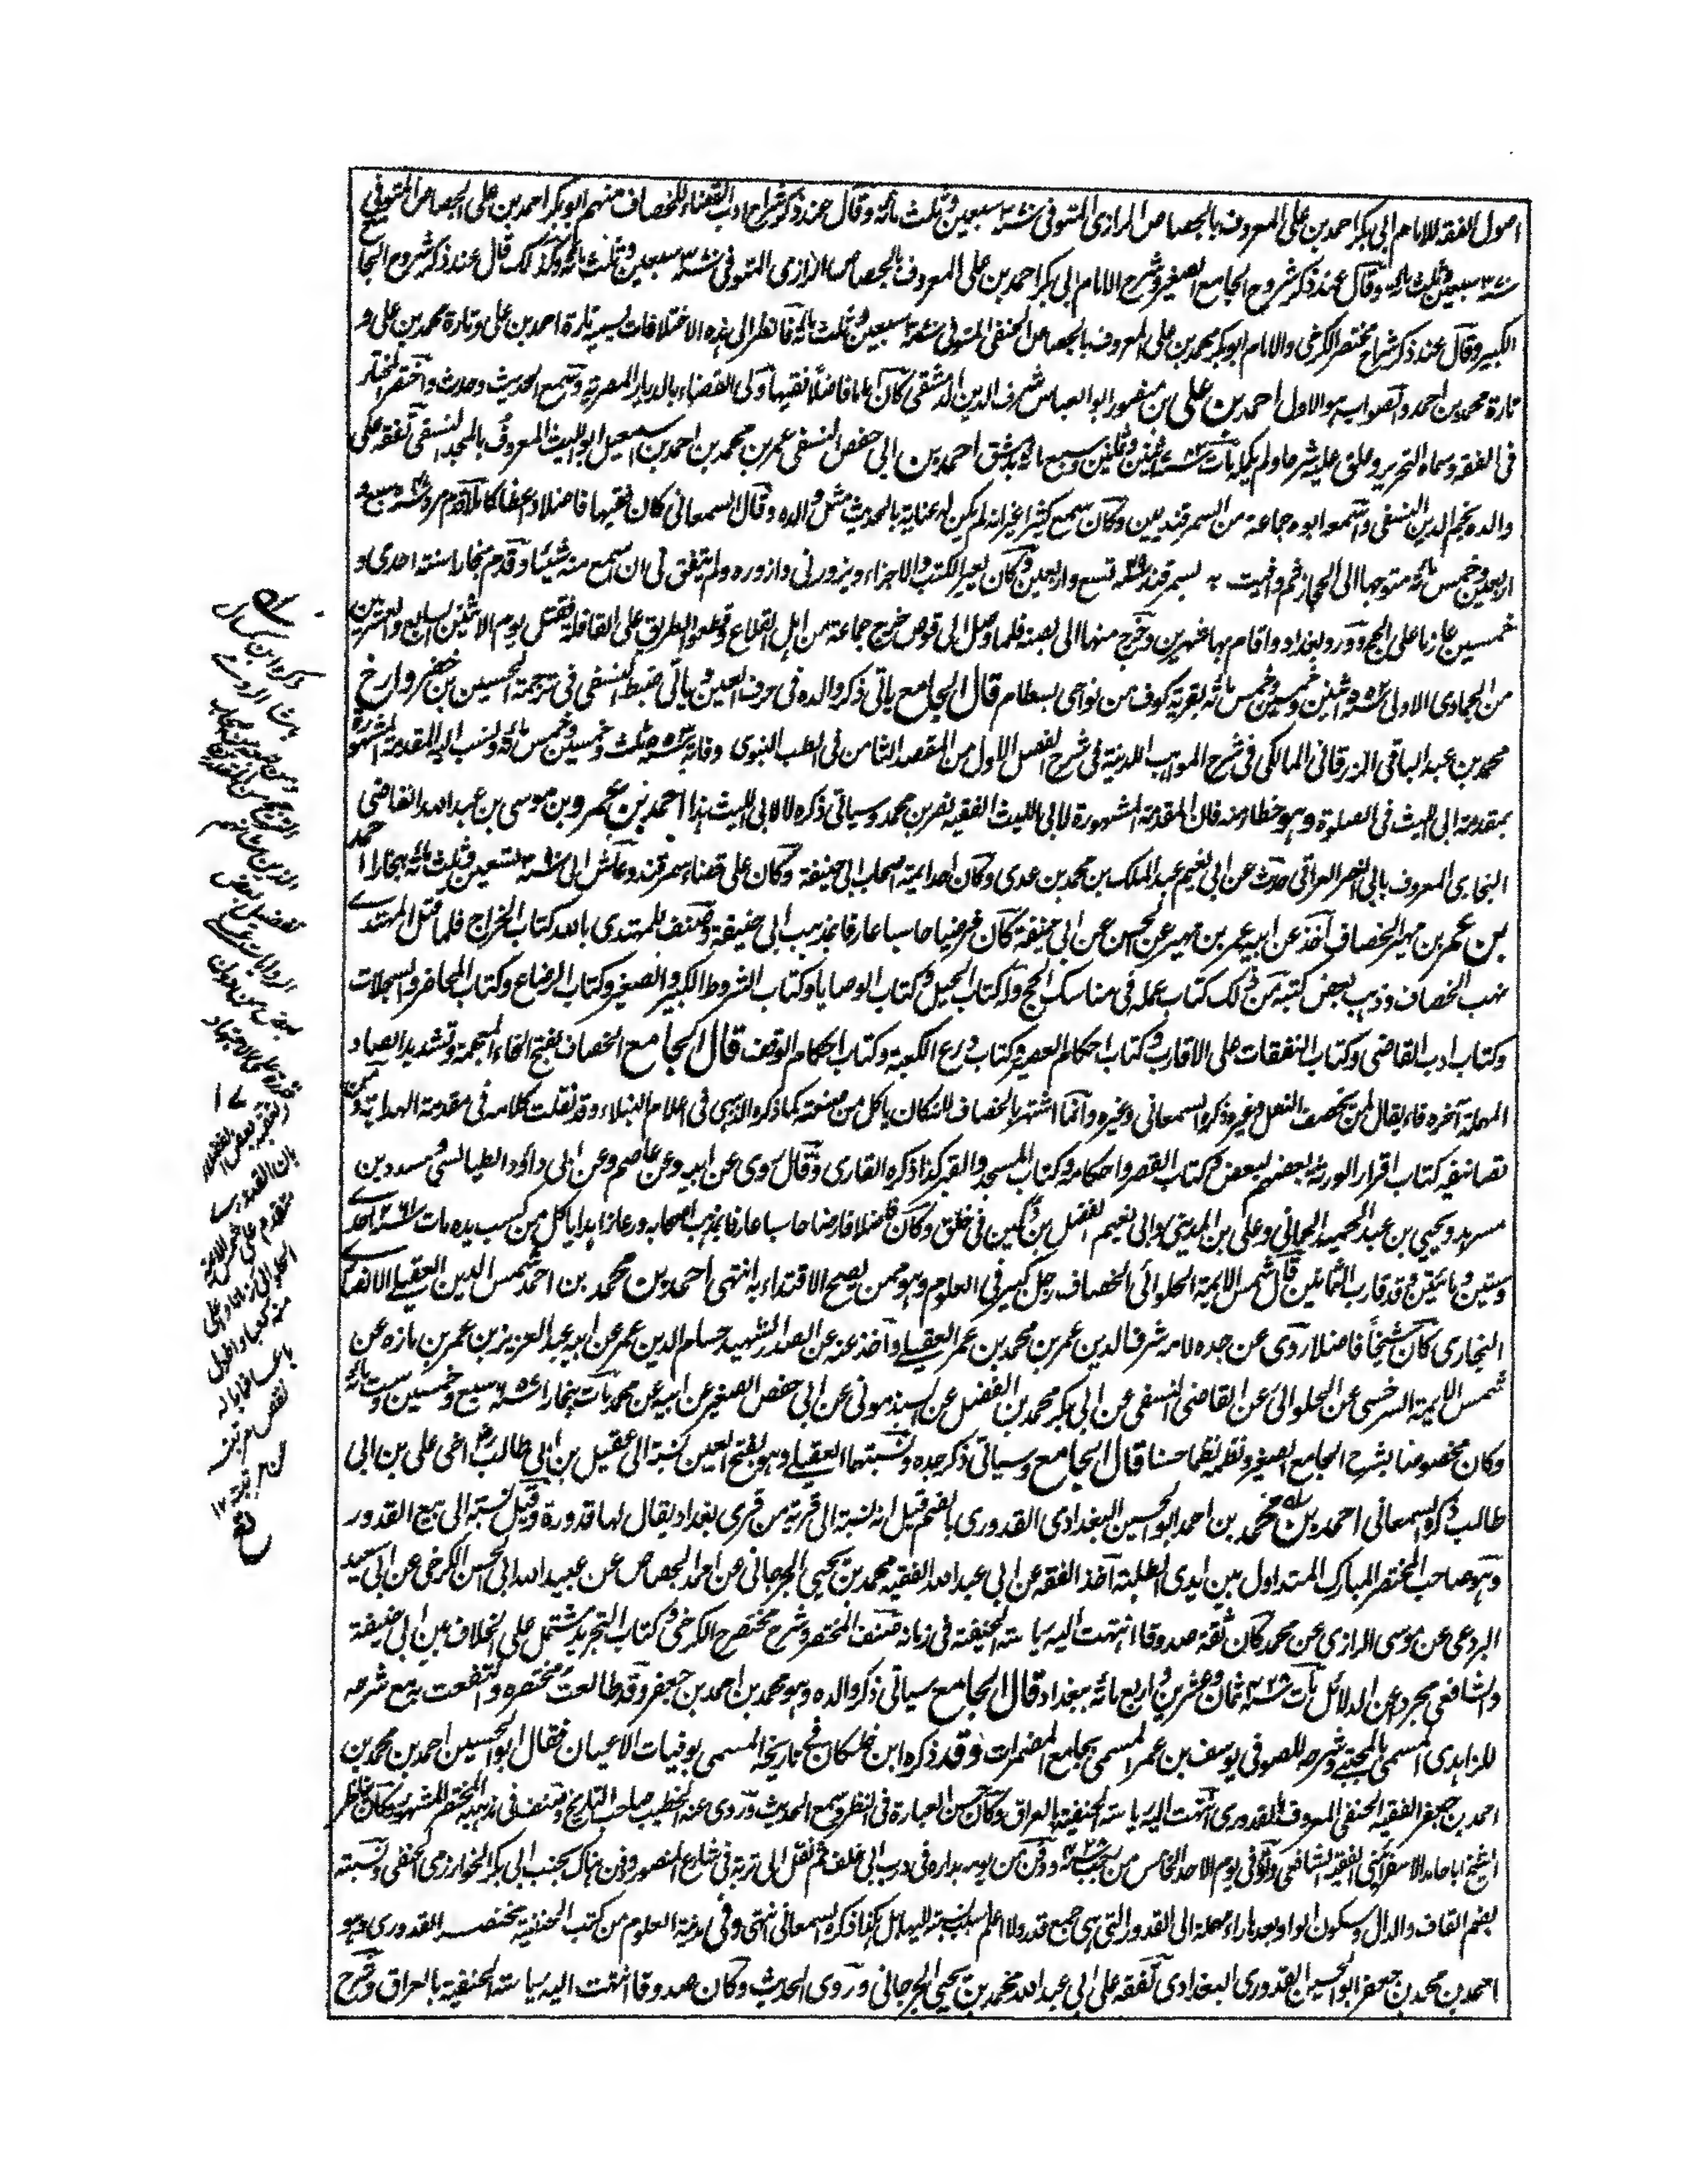 اصول الفقه للامام ابی بکر احمد بن علی المعروف بالجصاص الرازی المتوفی سنة ۳۷۰ سبعین وثلث مائة وقال عند ذکر شراح ادب القضاء للخصاف منهم ابو بکر احمد بن علی الجصاص المتوفی
سنة ۳۷۰ سبعین وثلث مائة وقال عند ذکر شروح الجامع الصغیر وشرح الامام ابی بکر احمد بن علی المعروف بالجصاص الرازی المتوفی سنة ۳۷۰ سبعین وثلث مائة وکذلک قال عند ذکر شروح الجامع
الکبیر وقال عند ذکر شراح مختصر الکرخی والامام ابو بکر محمد بن علی المعروف بالجصاص الحنفی المتوفی سنة ۳۷۰ سبعین وثلث مائة فانظر الی هذه الاختلافات یسمیه تارة احمد بن علی وتارة محمد بن علی و
تارة محمد بن احمد والصواب هو الاول احمد بن علی بن منصور ابو العباس شرف الدین الدمشقی کان اماما فاضلا فقیها ولی القضاء بالدیار المصریة وسمع الحدیث وحدث واختصر المختار
فی الفقه وسماه التحریر وعلق علیه شرحا ولم یکمله مات سنة ۷۸۲ اثنین وثمانین وسبع مائة بدمشق احمد بن ابی حفص النسفی عمر بن محمد بن احمد بن اسمعیل ابو اللیث المعروف بالمجد النسفی تفقه علی
والده نجم الدین النسفی واسمعه ابوه جماعة من السمرقندیین وکان سمع کثیرا غیر انه لم یکن له عنایة بالحدیث مثل والده وقال السمعانی کان فقیها فاضلا واعظا کاملا قدم مرو سنة سبع و
اربعین وخمس مائة متوجها الی الحجاز ثم وافیت به بسمرقند سنة ۵۴۹ تسع واربعین وکان یعیر الکتب والاجزاء ویزورنی وازوره ولم یتفق لی ان اسمع منه شیئا وقدم بخارا سنة احدی و
خمسین عازما علی الحج وورد بغداد واقام بها شهرین وخرج منها الی بصنه فلما وصل الی قومس خرج جماعة من اهل القلاع وقطعوا الطریق علی القافلة فقتل یوم الاثنین السابع والعشرین
من الجمادی الاولی سنة ۵۵۲ اثنین وخمسین وخمس مائة بقریة کوف من نواحی بسطام قال الجامع یاتی ذکر والده فی حرف العین ویاتی ضبط النسفی فی ترجمة الحسین بن خضر وارخ
محمد بن عبد الباقی الزرقانی المالکی فی شرح المواهب اللدنیة فی شرح الفصل الاول من المقصد الثامن فی الطب النبوی وفاته سنة ۵۵۳ ثلث وخمسین وخمس مائة ونسب الیه المقدمة المشهورة
بمقدمة ابی اللیث فی الصلوة وهو خطا منه فان المقدمة المشهورة لابی اللیث الفقیه نصر بن محمد وسیاتی ذکره لا لابی اللیث هذا احمد بن عمرو بن موسی بن عبد الله القاضی
البخاری المعروف بابی النصر العراقی حدث عن ابی نعیم عبد الملک بن محمد بن عدی وکان احد ایمة اصحاب ابی حنیفة وکان علی قضاء سمرقند وعاش الی سنة ۳۹۰ تسعین وثلث مائة ببخارا احمد
بن عمر بن مهیر الخصاف اخذ عن ابیه عمر بن مهیر عن الحسن عن ابی حنیفة کان فرضیا حاسبا عارفا بمذهب ابی حنیفة وصنف للمهتدی بالله کتاب الخراج فلما قتل المهتدی
نهب الخصاف وذهب بعض کتبه من ذلک کتاب عمله فی مناسک الحج وله کتاب الحیل وکتاب الوصایا وکتاب الشروط الکبیر والصغیر وکتاب الرضاع وکتاب المحاضر والسجلات
وکتاب ادب القاضی وکتاب النفقات علی الاقارب وکتاب احکام العصیر وکتاب ذرع الکعبة وکتاب احکام الوقف قال الجامع الخصاف بفتح الخاء المعجمة وتشدید الصاد
المهملة آخره فاء یقال لمن یخصف النعل وغیره ذکره السمعانی وغیره وانما اشتهر بالخصاف لانه کان یاکل من صنعته کما ذکره الذهبی فی اعلام النبلاء وقد نقلت کلامه فی مقدمة الهدایة ومن
تصانیفه کتاب اقرار الورثة بعضهم لبعض وکتاب القصر واحکامه وکتاب المسجد والقبر کذا ذکره القاری وقال روی عن ابیه وعن عاصم وعن ابی داؤد الطیالسی ومسدد بن
مسرهد ویحیی بن عبد الحمید الحمانی وعلی بن المدینی وابی نعیم الفضل بن دکین فی خلق وکان فاضلا فارضا حاسبا عارفا بمذهب اصحابه ورعا زاهدا یاکل من کسب یده مات سنة ۲۶۱ احدی
وستین ومائتین وقد قارب الثمانین قال شمس الایمة الحلوائی الخصاف رجل کبیر فی العلوم وهو ممن یصح الاقتداء به انتهی احمد بن محمد بن احمد شمس الدین العقیلی الانصاری
البخاری کان شیخا فاضلا روی عن جده لامه شرف الدین عمر بن محمد بن عمر العقیلی واخذ عنه عن الصدر الشهید حسام الدین عمر عن ابیه عبد العزیز بن عمر بن مازه عن
شمس الایمة السرخسی عن الحلوائی عن القاضی النسفی عن ابی بکر محمد بن الفضل عن السبذمونی عن ابی حفص الصغیر عن ابیه عن محمد مات ببخارا سنة ۶۵۷ سبع وخمسین وست مائة
وکان مخصوصا بشرح الجامع الصغیر ونظمه نظما حسنا قال الجامع وسیاتی ذکر جده ونسبتهما العقیلی وهو بفتح العین نسبة الی عقیل بن ابی طالب اخی علی بن ابی
طالب ذکره السمعانی احمد بن محمد بن احمد ابو الحسین البغدادی القدوری بالضم قیل انه نسبة الی قریة من قری بغداد یقال لها قدورة وقیل نسبة الی بیع القدور
وهو صاحب المختصر المبارک المتداول بین ایدی الطلبة اخذ الفقه عن ابی عبد الله الفقیه محمد بن یحیی الجرجانی عن احمد الجصاص عن عبید الله ابی الحسن الکرخی عن ابی سعید
البردعی عن موسی الرازی عن محمد کان ثقة صدوقا انتهت الیه ریاسة الحنیفة فی زمانه صنف المختصر وشرح مختصر الکرخی وکتاب التجرید مشتمل علی الخلاف بین ابی حنیفة
والشافعی مجردا عن الدلائل مات سنة ۴۲۸ ثمان وعشرین واربع مائة ببغداد قال الجامع سیاتی ذکر والده وهو محمد بن احمد بن جعفر وقد طالعت مختصره وانتفعت به مع شرحه
للزاهدی المسمی بالمجتبی وشرحه للصوفی یوسف بن عمر المسمی بجامع المضمرات وقد ذکره ابن خلکان فی تاریخه المسمی بوفیات الاعیان فقال ابو الحسین احمد بن محمد بن
احمد بن جعفر الفقیه الحنفی المعروف بالقدوری انتهت الیه ریاسة الحنفیة بالعراق وکان حسن العبارة فی النظر وسمع الحدیث وروی عنه الخطیب صاحب التاریخ وصنف فی مذهبه المختصر المشهور وکان یناظر
الشیخ ابا حامد الاسفرائنی الفقیه الشافعی وتوفی یوم الاحد الخامس من رجب سنة ۴۲۸ ودفن من یومه بداره فی درب ابی خلف ثم نقل الی تربة فی شارع المنصور ودفن هناک بجنب ابی بکر الخوارزمی الحنفی ونسبته
بضم القاف والدال وسکون الواو وبعدها راء مهملة الی القدور التی هی جمع قدر ولا اعلم سبب نسبته الیها بل هکذا ذکره السمعانی انتهی وفی مدینة العلوم من کتب الحنفیة مختصر القدوری وهو
احمد بن محمد بن جعفر ابو الحسین القدوری البغدادی تفقه علی ابی عبد الله محمد بن یحیی الجرجانی وروی الحدیث وکان صدوقا انتهت الیه ریاسة الحنفیة بالعراق وشرح
ذکره ابن کمال
باشا الرومی
تفضیل بعض
الروایات علی
بعض
بان القدوری
متقدم علی شمس الائمة
الحلوائی زمانا واعلی
منه کعبا واطول
باعا فما باله
نقص مرتبته
عن مرتبته ۱۲